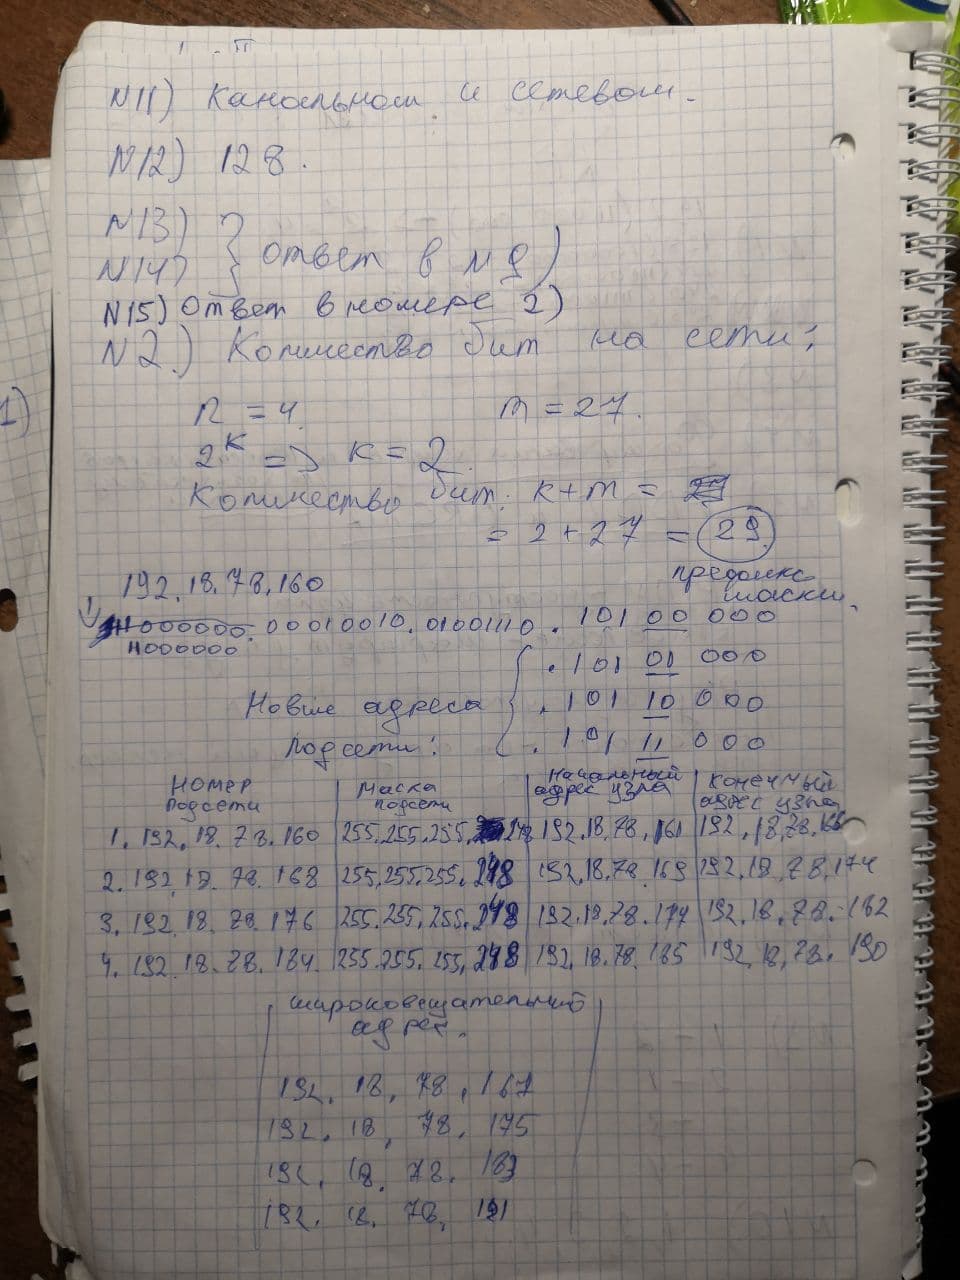 N11) Канальном и сетевом.
N12) 128.
N13)
N14) } ответ в N9)
N15) Ответ в номере 2)
N2.) Количество бит на сети:
1)
n = 4. m = 27.
2^k => k = 2.
Количество бит: k+m =
= 2 + 27 = 29.
префикс маски.
192.18.78.160
11000000. 00010010. 01001110. 101 00 000
11000000
. 101 01 000
Новые адреса . 101 10 000
подсети: . 101 11 000
Номер подсети | Маска подсети | Начальный адрес узла | Конечный адрес узла
1. 192.18.78.160 | 255.255.255.248 | 192.18.78.161 | 192.18.78.166
2. 192.18.78.168 | 255.255.255.248 | 192.18.78.169 | 192.18.78.174
3. 192.18.78.176 | 255.255.255.248 | 192.18.78.177 | 192.18.78.182
4. 192.18.78.184. | 255.255.255.248 | 192.18.78.185 | 192.18.78.190
широковещательный
адрес.
192.18.78.167
192.18.78.175
192.18.78.183
192.18.78.191